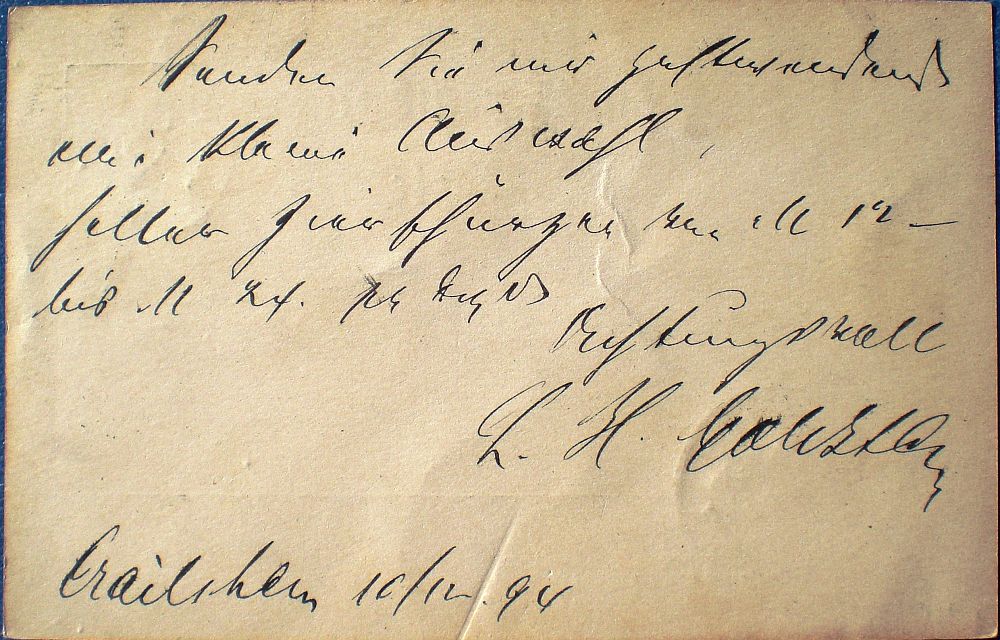 Senden Sie mir postwendend
eine kleine Auswahl,
heller Zierschürzen von M 12 –
bis M 24. pr Dzd
Achtungsvoll
L. H.
Crailsheim 10/12. 94